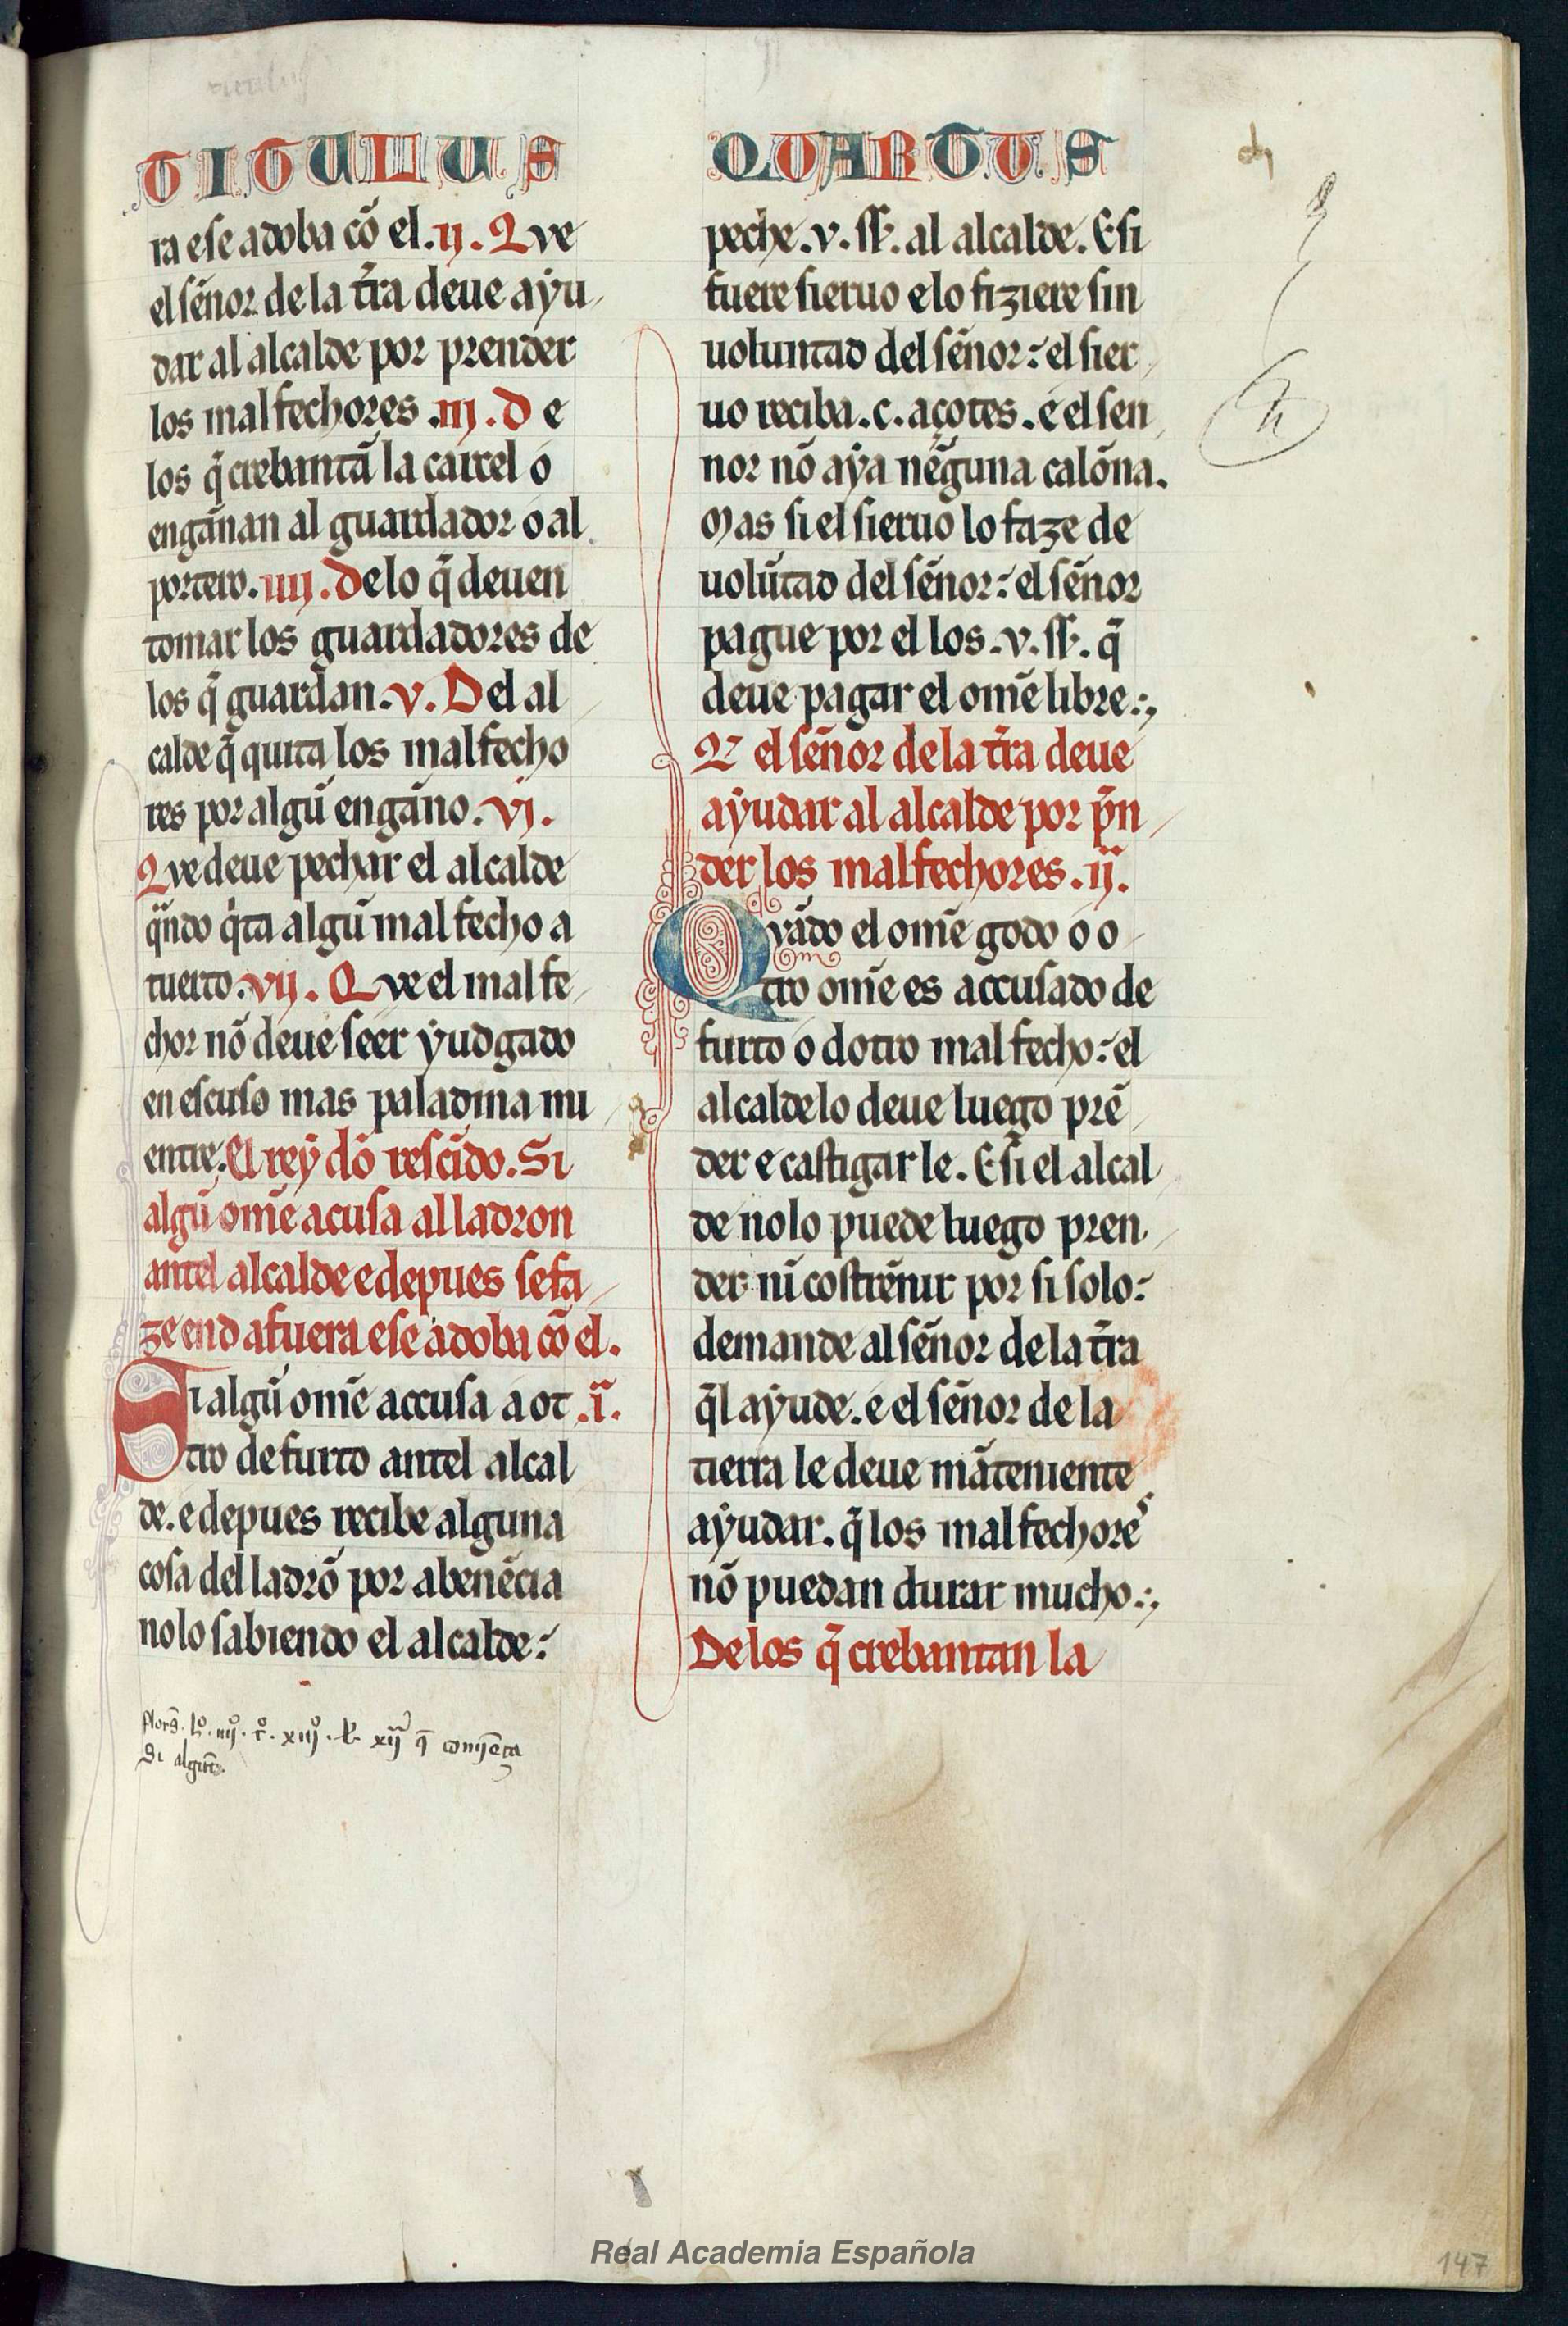 TITULUS
ra e se adoba cõ el .ii. Que
el sẽnor de la tr̃a deue aẏu
dar al alcalde por prender
los malfechores .iii. De
los q̃ crebantã la carcel o
engãnan al guardador o al
portero. iiii. De lo q̃ deuen
tomar los guardadores de
los q̃ guardan. v. Del al
calde q̃ quita los malfecho
res por algũ engãno. vi.
Que deue pechar el alcalde
qũndo q̇ta algũ mal fecho a
tuerto. vii. Que el mal fe
chor nõ deue seer ẏudgado
en escuso mas paladina mi
entre. El reẏ dõ rescĩdo. Si
algũ om̃e acusa al ladron
antel alcalde e depues se fa
ze end afuera e se adoba cõ el.
Si algũ om̃e accusa a ot .iª.
tro de furto antel alcal
de. e depues recibe alguna
cosa del ladrõ por abenẽcia
no lo sabiendo el alcalde:
lo. iiij. to. xiij. l. xij q̃ comiẽça
Si algũ
QUARTUS
peche .v. ss̃. al alcalde. E si
fuere sieruo e lo fiziere sin
uoluntad del sẽnor: el sier
uo reciba .c. açotes. e el sen
nor nõ aẏa nẽguna calõna.
Mas si el sieruo lo faze de
uolũtad del sẽnor: el sẽnor
pague por el los .v. ss̃. q̃
deue pagar el om̃e libre:,
Q̃ el sẽnor de la tr̃a deue
aẏudar al alcalde por p̃n
der los malfechores .ii.
Quãdo el om̃e godo o o
tro om̃e es accusado de
furto o dotro mal fecho: el
alcalde lo deue luego prẽ
der e castigar le. E si el alcal
de no lo puede luego pren
der ni cost̃rẽnir por si solo:
demande al sẽnor de la tr̃a
q̃l aẏude. e el sẽnor de la
tierra le deue mãteniente
aẏudar. q̃ los mal fechores
nõ puedan durar mucho:,
De los q̃ crebantan la
Real Academia Española
147